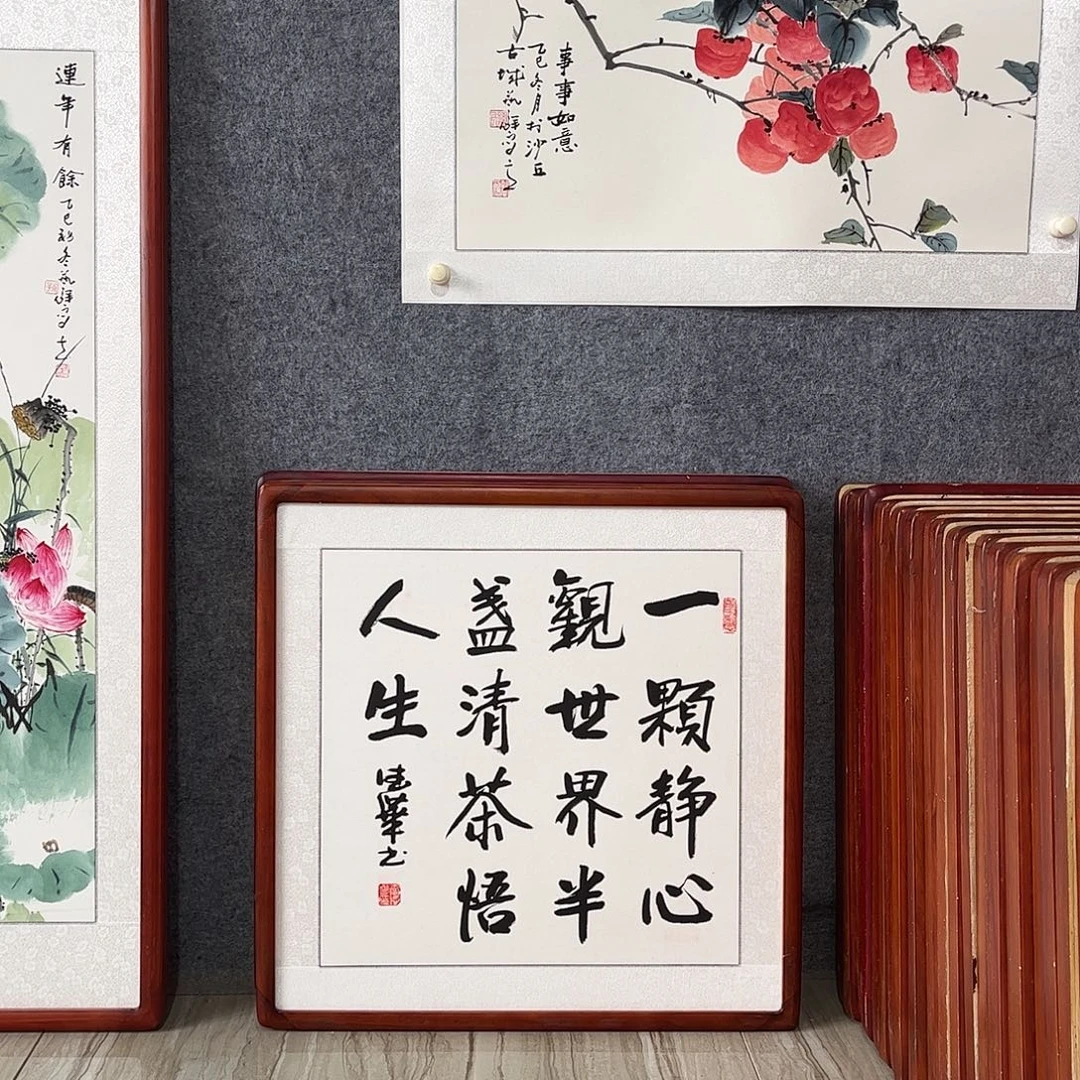 一顆静心
觀世界半
盏清茶悟
人生
德華书
事事如意
乙巳冬月於沙丘
古城
連年有餘乙巳初冬